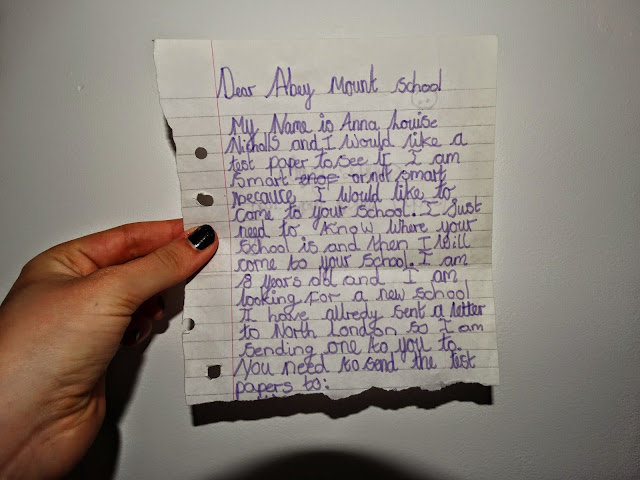 Dear Abey Mount School
My Name is Anna Louise
Nicholls and I would like a
test paper to see If I am
Smart enof or not smart
because I would like to
come to your school. I just
need to know where your
school is and then I will
come to your school. I am
8 years old and I am
looking for a new school
I have allredy sent a letter
to North London so I am
sending one to you to.
You need to send the test
papers to: